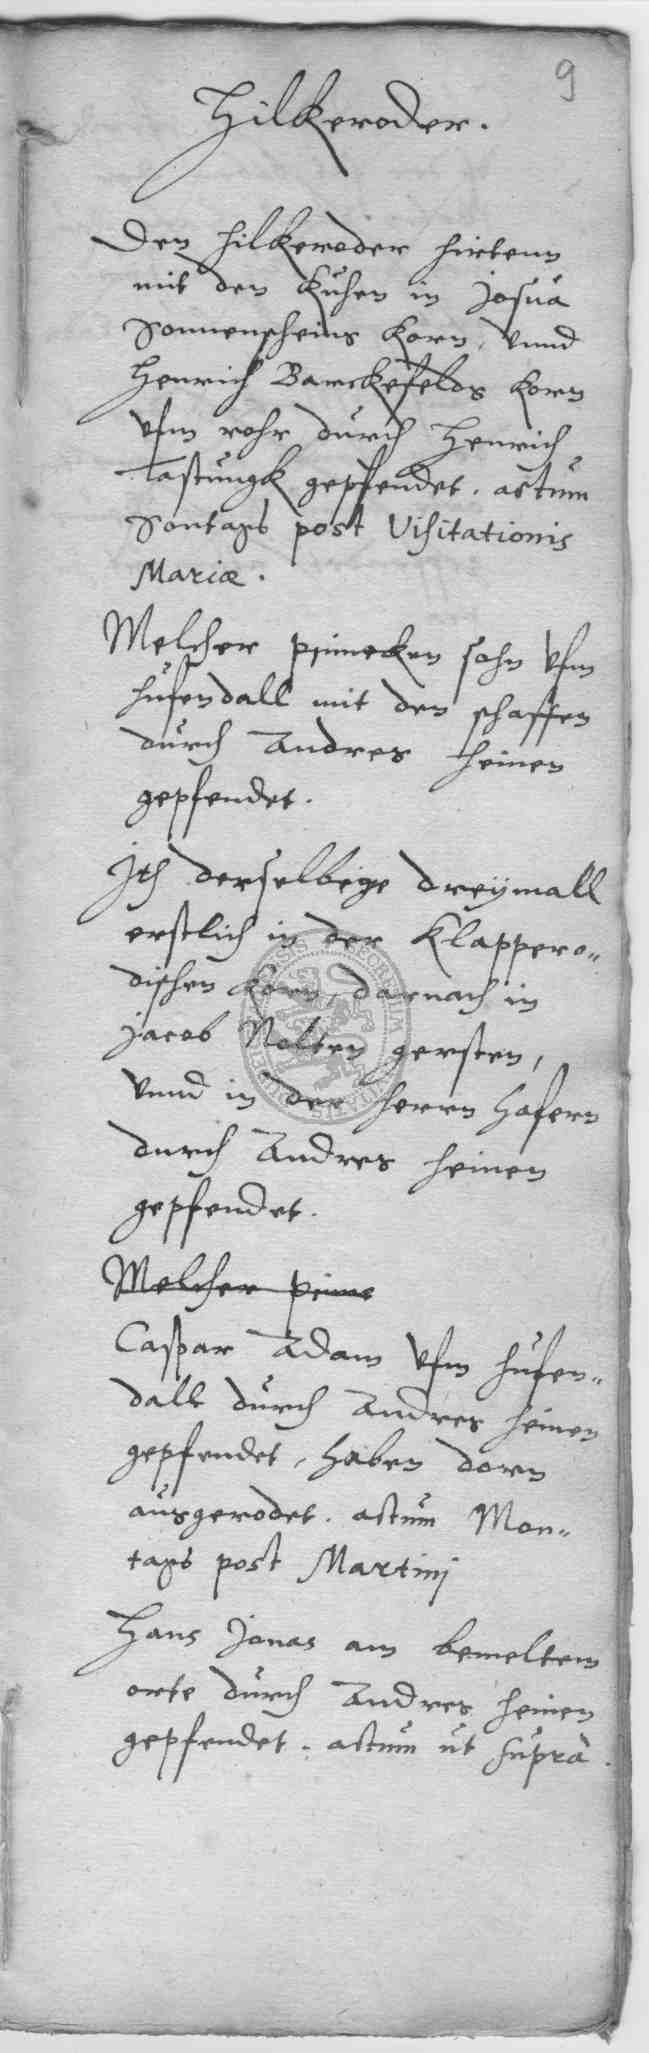 9
Hilkeroder.
Den Hilkeroder hirtenn
mit den Kuhen in Josua
Sonnenscheins Korn, vnnd
Henrich Barckefelds Korn
vfm rohr durch Henrich
Tastungk gepfendet. actum
Sontags post Visitationis
Mariæ.
Melcher sohn vfm
hufendall mit den schaffen
durch Andres Heinen
gepfendet.
Jth derselbige dreÿmall
erstlich in der Klappero„
dischen Korn, darnach in
Jacob Nolten gersten,
vnnd in der Herrn Hafern
durch Andres Heinen
gepfendet.
Melcher
Caspar Adam vfm hufen„
dall durch Andres Heinen
gepfendet, haben dorn
ausgerodet. actum Mon„
tags post Martinj
Hans Jonas am bemeltem
orte durch Andres Heinen
gepfendet. actum ut supra.